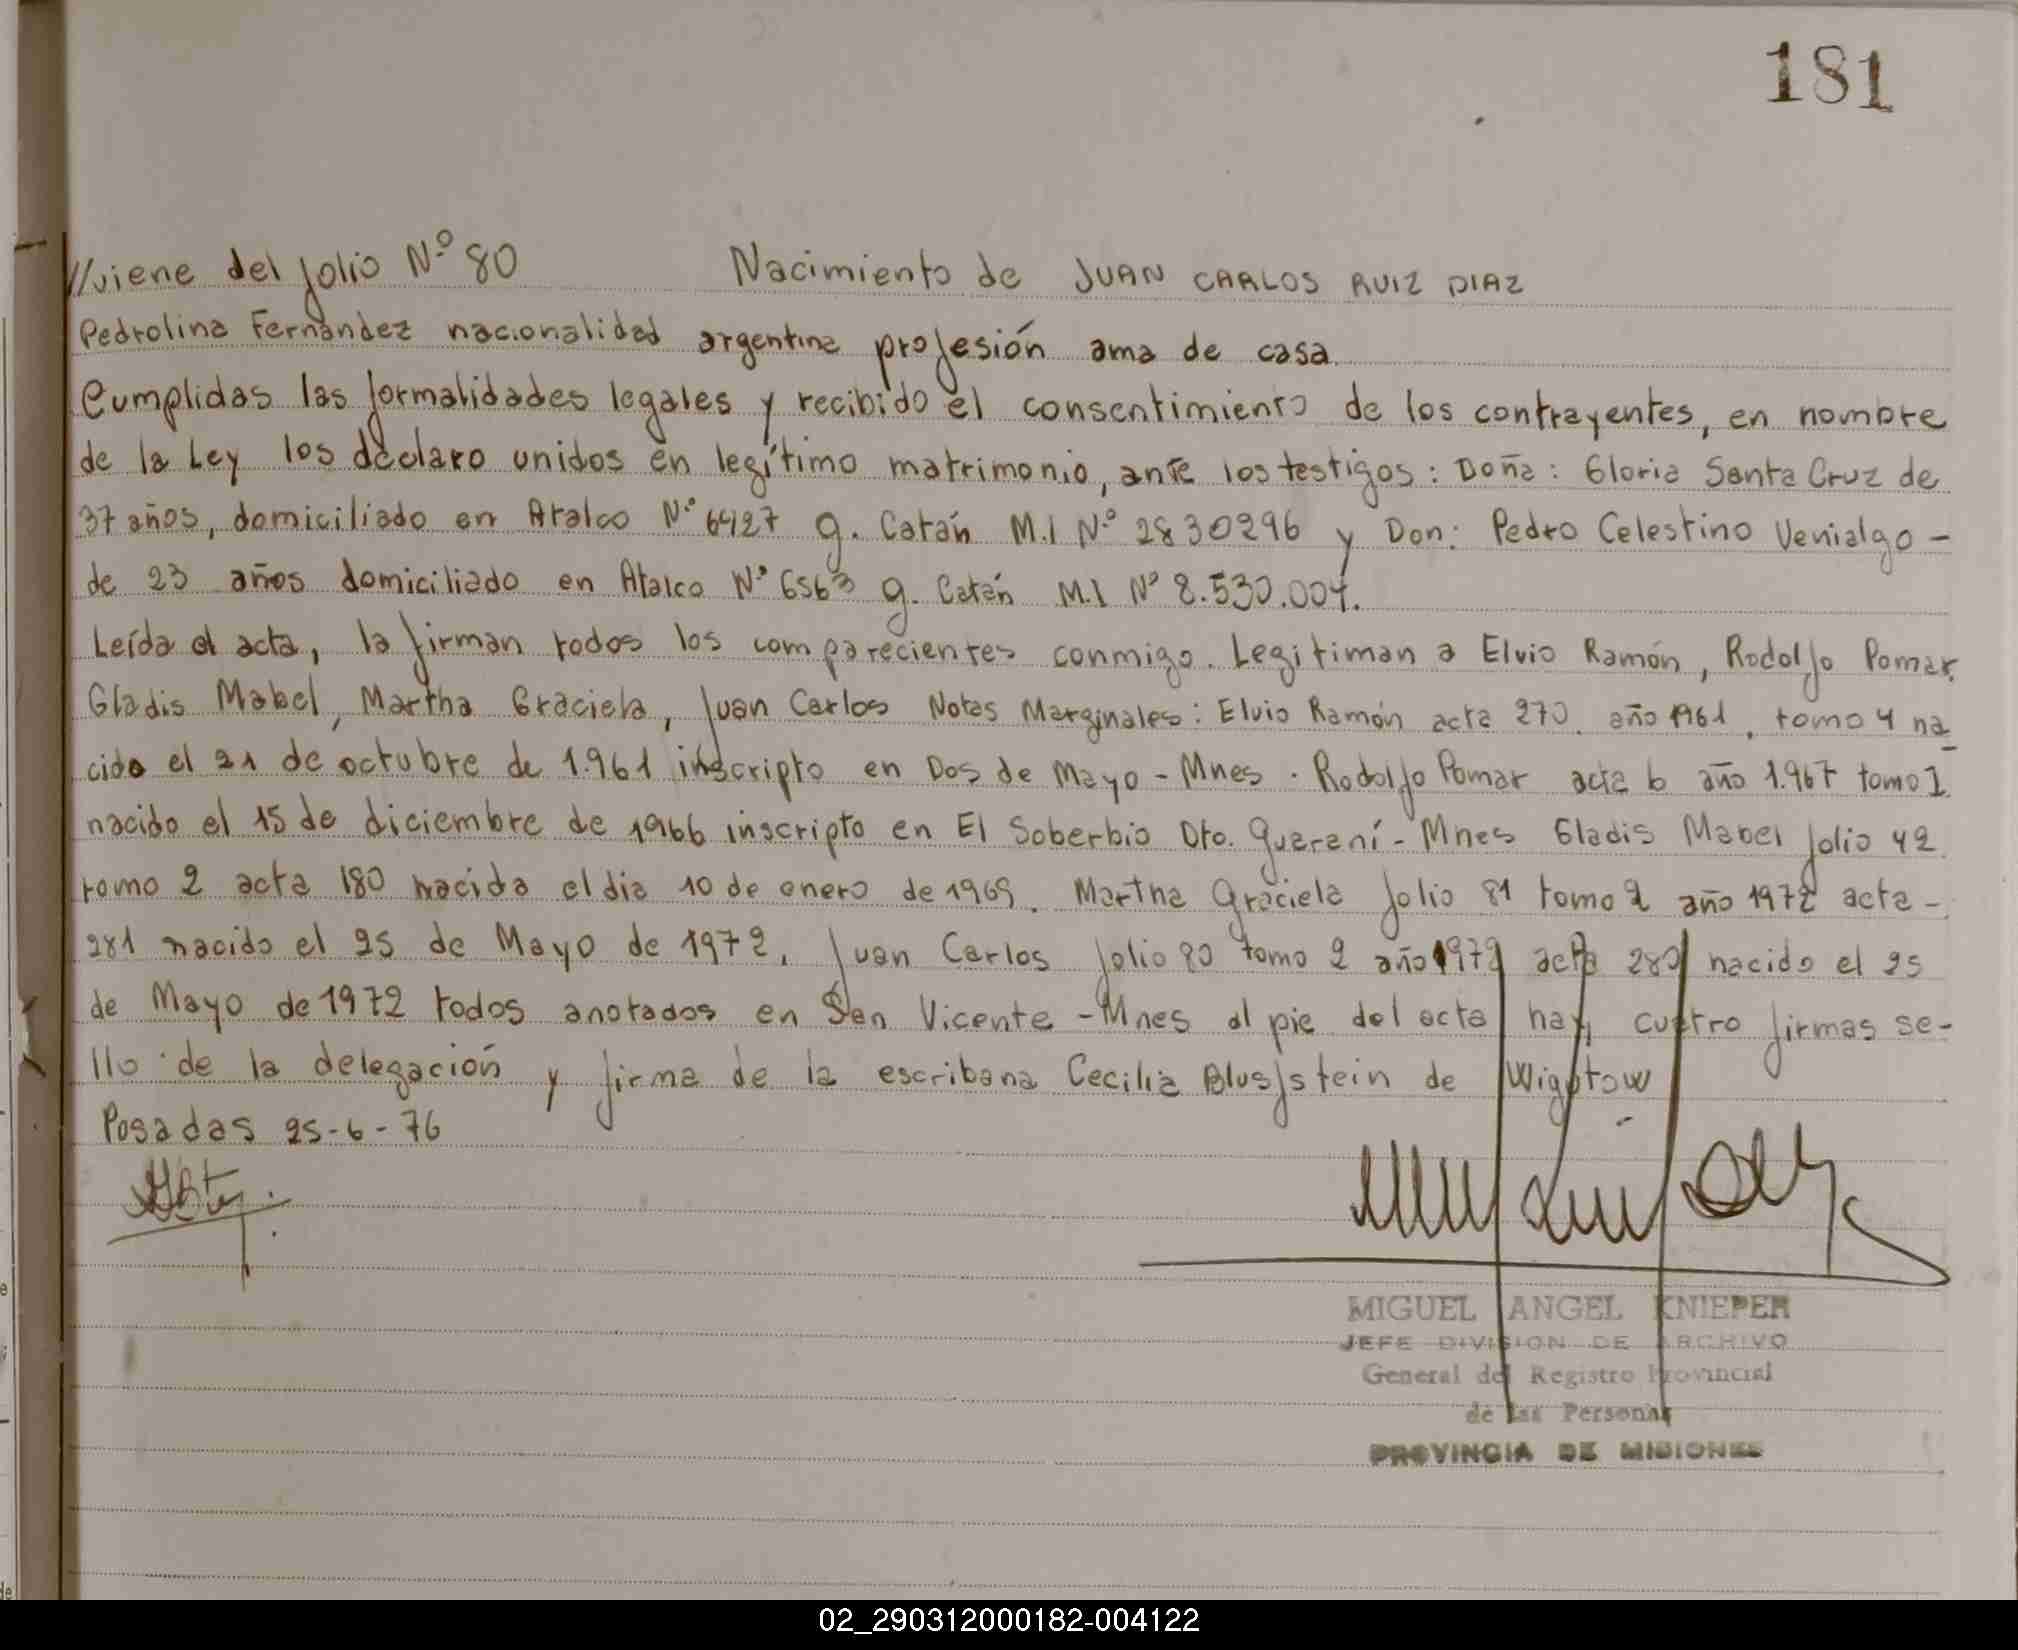 181
//viene del folio Nº 80 Nacimiento de JUAN CARLOS RUIZ DIAZ
Pedrolina Fernández nacionalidad argentina profesión ama de casa.
Cumplidas las formalidades legales y recibido el consentimiento de los contrayentes, en nombre
de la Ley los declaro unidos en legítimo matrimonio, ante los testigos: Doña: Gloria Santa Cruz de
37 años, domiciliado en Atalco Nº 6427 g. Catán M.I Nº 2830296 y Don: Pedro Celestino Venialgo -
de 23 años domiciliado en Atalco Nº 6563 g. Catán M.I Nº 8.530.004.
Leída el acta, la firman todos los comparecientes conmigo. Legitiman a Elvio Ramón, Rodolfo Pomar,
Gladis Mabel, Martha Graciela, Juan Carlos Notas Marginales: Elvio Ramón acta 270. año 1961. tomo 4 na
cido el 21 de octubre de 1.961 inscripto en Dos de Mayo - Mnes. Rodolfo Pomar acta 6 año 1.967 tomo I
nacido el 15 de diciembre de 1966 inscripto en El Soberbio Dto. Guaraní - Mnes Gladis Mabel folio 42
tomo 2 acta 180 nacida el dia 10 de enero de 1969. Martha Graciela folio 81 tomo 2 año 1972 acta -
281 nacido el 25 de Mayo de 1972. Juan Carlos folio 80 tomo 2 año 1972 acta 280 nacido el 25
de Mayo de 1972 todos anotados en San Vicente - Mnes al pie del acta hay cuatro firmas se-
llo de la delegación y firma de la escribana Cecilia de
Posadas 25-6-76
MIGUEL ANGEL KNIEPER
JEFE DIVISION DE ARCHIVO
General del Registro Provincial
de las Personas
PROVINCIA DE MISIONES
02_290312000182-004122